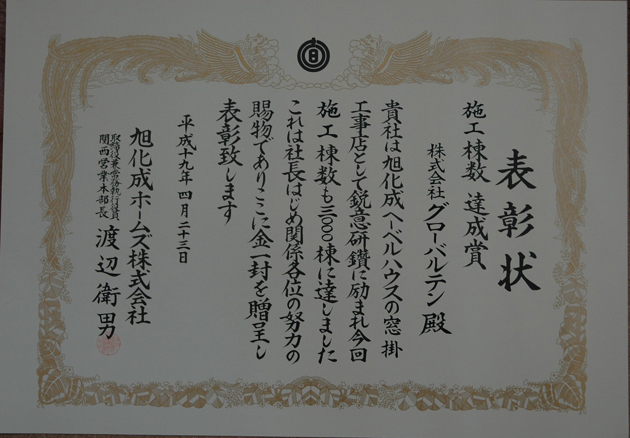 表彰状
施工棟数 達成賞
株式会社 グローバルテン 殿
貴社は旭化成ヘーベルハウスの窓掛
工事店として鋭意研鑽に励まれ今回
施工棟数も三〇〇〇棟に達しました
これは社長はじめ関係各位の努力の
賜物でありここに金一封を贈呈し
表彰致します
平成十九年四月二十三日
旭化成ホームズ株式会社
取締役兼常務執行役員
関西営業本部長 渡辺衛男